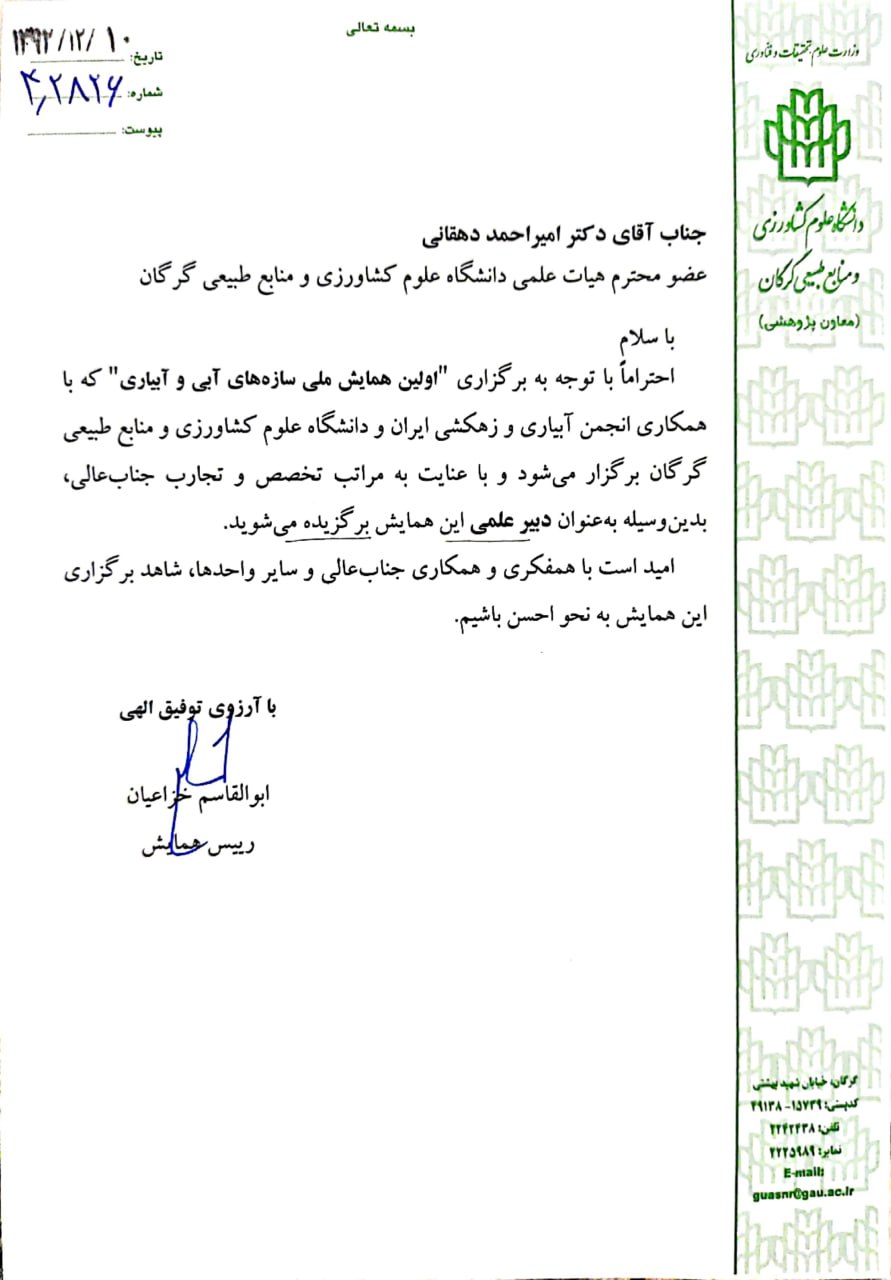 بسمه تعالی
تاریخ: ۱۳۹۲/۱۲/۱۰
شماره: ۴,۲۸۲۶
پیوست:
وزارت علوم، تحقیقات و فناوری
دانشگاه علوم کشاورزی
و منابع طبیعی گرگان
(معاون پژوهشی)
جناب آقای دکتر امیراحمد دهقانی
عضو محترم هیات علمی دانشگاه علوم کشاورزی و منابع طبیعی گرگان
با سلام
احتراماً با توجه به برگزاری "اولین همایش ملی سازه‌های آبی و آبیاری" که با
همکاری انجمن آبیاری و زهکشی ایران و دانشگاه علوم کشاورزی و منابع طبیعی
گرگان برگزار می‌شود و با عنایت به مراتب تخصص و تجارب جناب‌عالی،
بدین‌وسیله به‌عنوان دبیر علمی این همایش برگزیده می‌شوید.
امید است با همفکری و همکاری جناب‌عالی و سایر واحدها، شاهد برگزاری
این همایش به نحو احسن باشیم.
با آرزوی توفیق الهی
ابوالقاسم خزاعیان
رییس همایش
گرگان، خیابان شهید بهشتی
کدپستی: ۱۵۷۳۹-۴۹۱۳۸
تلفن: ۲۲۴۲۴۳۸
نمابر: ۲۲۲۵۹۸۹
E-mail:
guasnr@gau.ac.ir